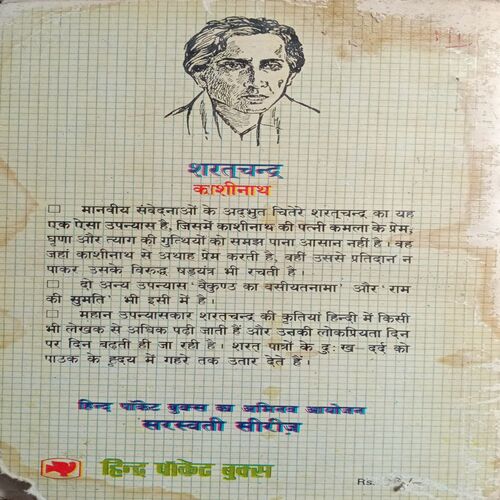 शरत्चन्द्र
काशीनाथ
□ मानवीय संवेदनाओं के अद्भुत चितेरे शरत्चन्द्र का यह
एक ऐसा उपन्यास है, जिसमें काशीनाथ की पत्नी कमला के प्रेम,
घृणा और त्याग की गुत्थियों को समझ पाना आसान नहीं है। वह
जहां काशीनाथ से अथाह प्रेम करती है, वहीं उससे प्रतिदान न
पाकर उसके विरुद्ध षड़यंत्र भी रचती है।
□ दो अन्य उपन्यास 'बैकुण्ठ का बसीयतनामा' और 'राम
की सुमति' भी इसी में है।
□ महान उपन्यासकार शरत्चन्द्र की कृतियां हिन्दी में किसी
भी लेखक से अधिक पढ़ी जाती हैं और उनकी लोकप्रियता दिन
पर दिन बढ़ती ही जा रही है। शरत् पात्रों के दुःख-दर्द को
पाठक के हृदय में गहरे तक उतार देते हैं।
हिन्द पॉकेट बुक्स का अभिनव आयोजन
सरस्वती सीरीज़
हिन्द पॉकेट बुक्स
Rs.